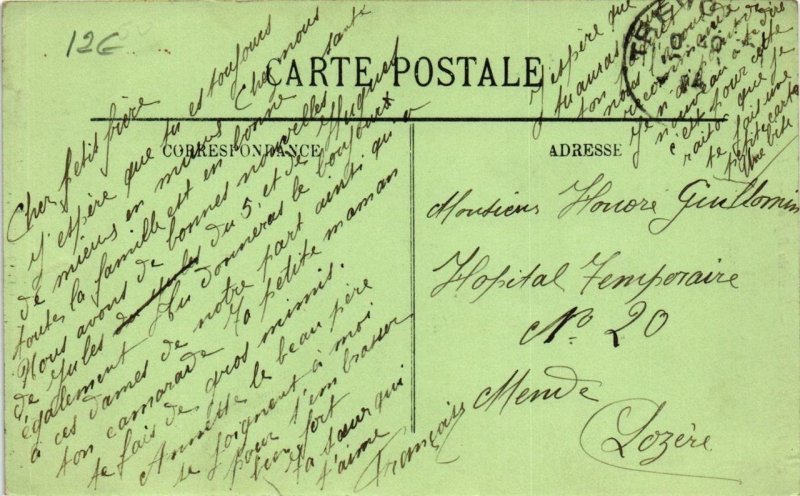 12€
CARTE POSTALE
CORRESPONDANCE
ADRESSE
Cher petit frère
J'espère que tu es toujours
de mieux en mieux. Chez nous
toutes la famille est en bonne santé
Nous avons de bonnes nouvelles
de Jules du 5, et de Hugues
également. Tu donneras le bonjour
à ces dames de notre part ainsi qu'à
ton camarade. Ta petite maman
te fais de gros mimis.
Annette le beau père
se joignent à moi
pour t'embrasser
bien fort
Ta sœur qui
t'aime
François
J'espère que
tu auras
ton
nous
Je n'ai
nouveau à te dire
c'est pour cette
raison que je
te fais une
petite carte
Une bise
Monsieur Honoré Guillomin
Hopital Temporaire
No. 20
Mende
Lozère